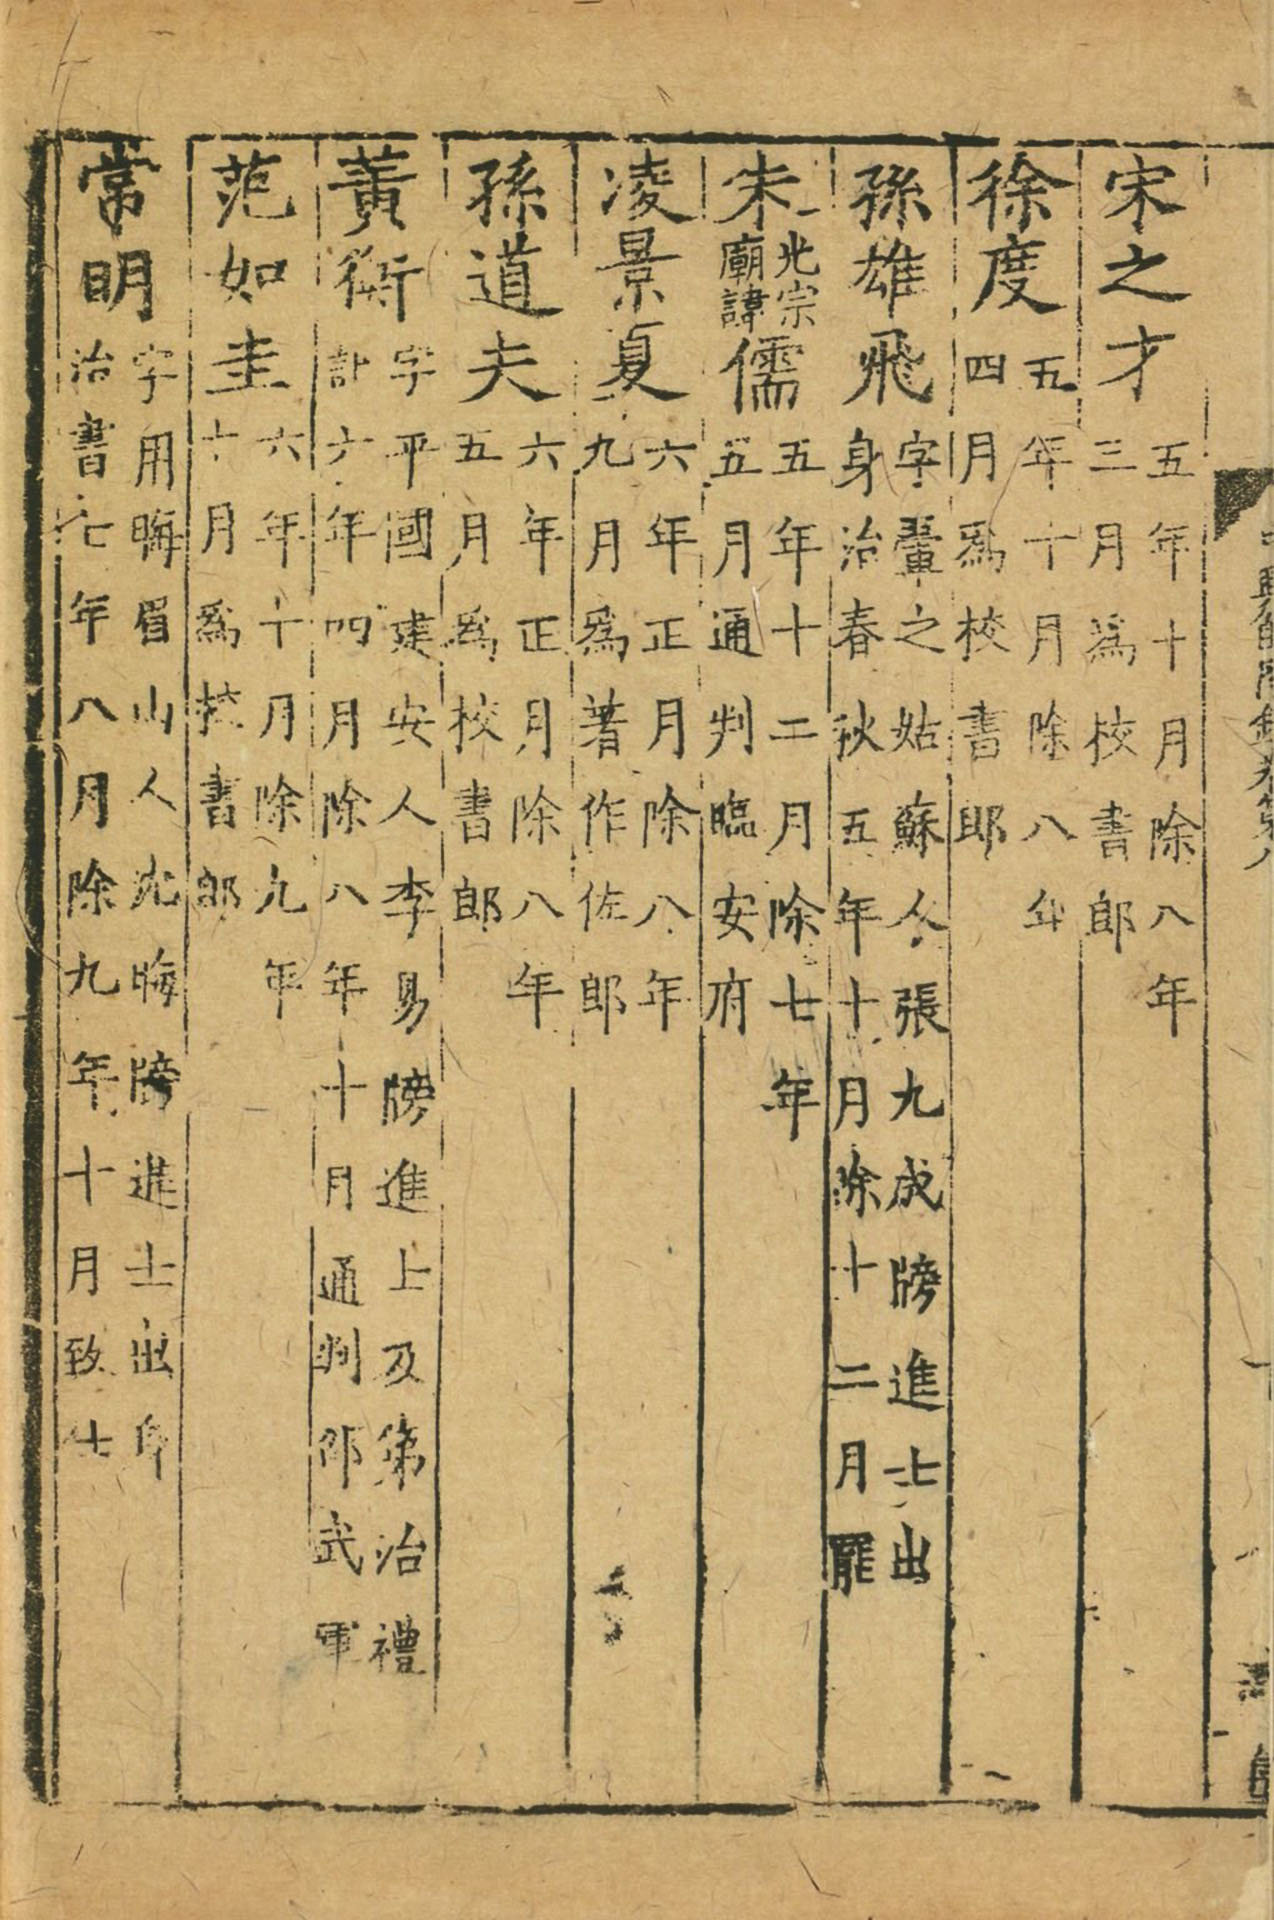 宋之才五年十月除八年
三月為校書郎
徐度五年十月除八年
四月為校書郎
孫雄飛字翬之姑蘇人張九成牓進士出
身治春秋五年十月除十二月罷
朱光宗
廟諱儒五年十二月除七年
五月通判臨安府
凌景夏六年正月除八年
九月為著作佐郎
孫道夫六年正月除八年
五月為校書郎
黃衡字平國建安人李易牓進上及第治禮
記六年四月除八年十月通判邵武軍
范如圭六年十月除九年
十月為校書郎
常明字用晦眉山人沈晦牓進士出身
治書七年八月除九年十月致仕